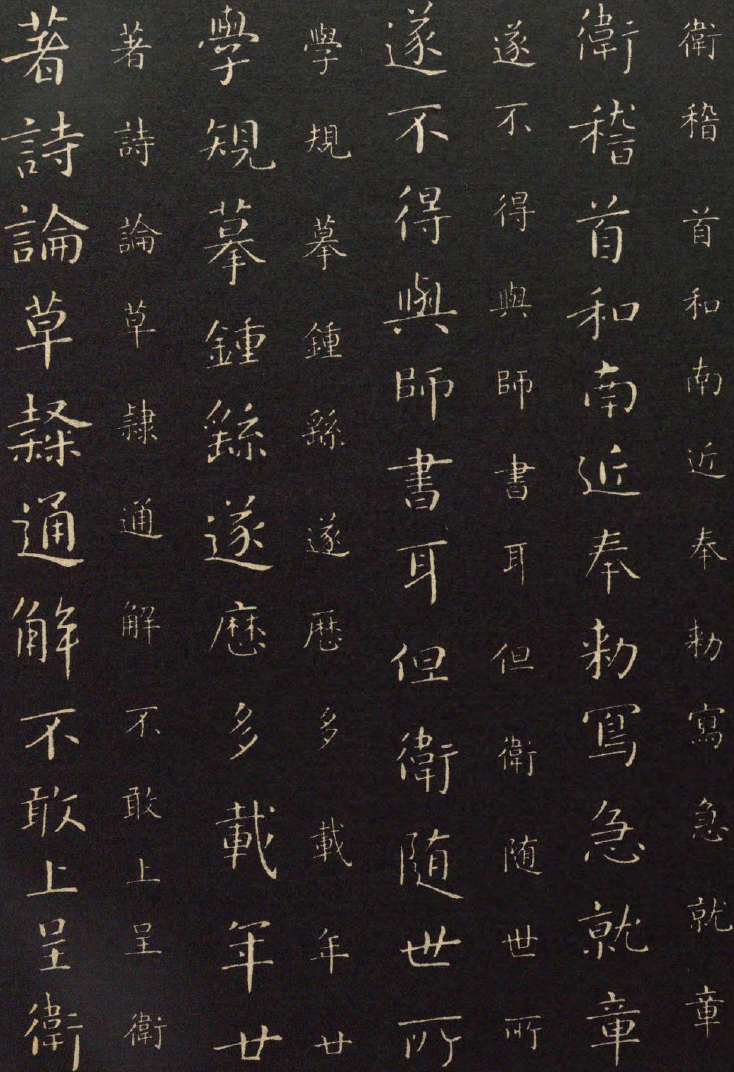 衛稽首和南近奉勅寫急就章
衛稽首和南近奉勅寫急就章
遂不得與師書耳但衛随世所
遂不得與師書耳但衛随世所
學規摹鍾繇遂歷多載年廿
學規摹鍾繇遂歷多載年廿
著詩論草隸通解不敢上呈衛
著詩論草隸通解不敢上呈衛